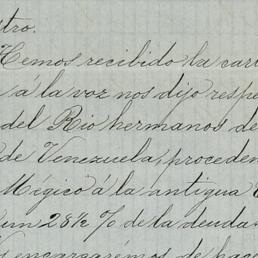 tro.
Hemos recibido la car
á la voz nos dijo respe
del Rio hermanos de
de Venezuela, proceden
Mégico á la antigua
un 28½ % de la deuda
encargarémos de hace